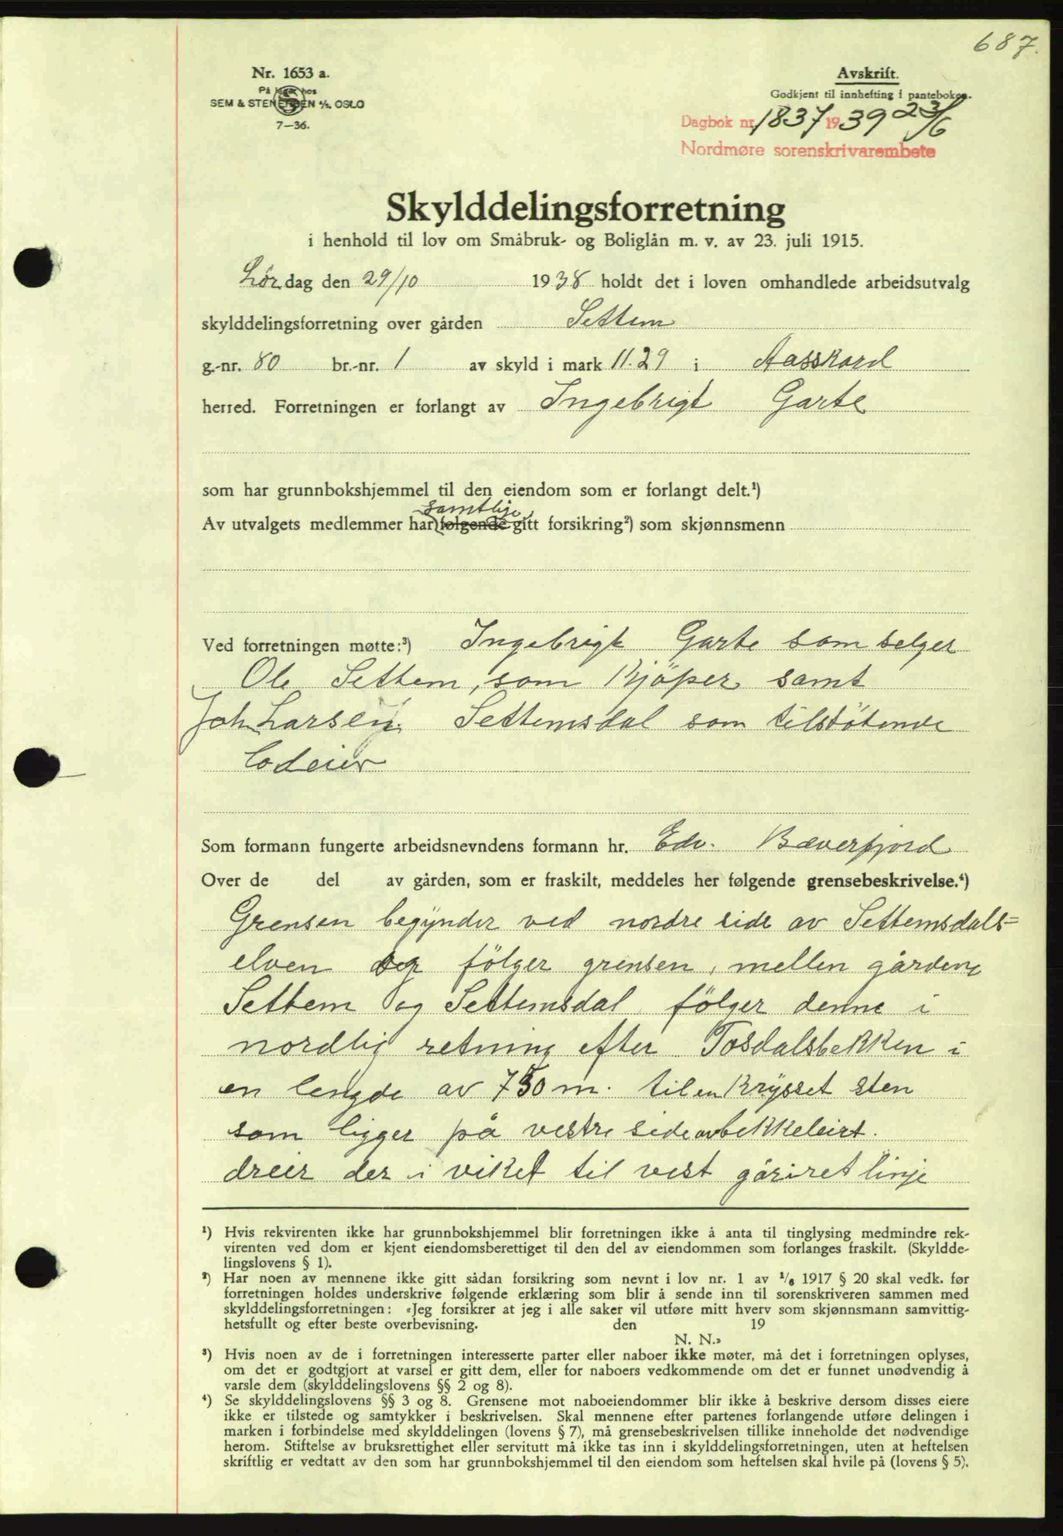 687.
Nr. 1653 a.
På lager hos
SEM & STENERSEN A/S, OSLO
7-36.
Avskrift.
Godkjent til innhefting i pantebøken.
Dagbok nr. 1837 1939 23/6
Nordmøre sorenskrivarembete
Skylddelingsforretning
i henhold til lov om Småbruk- og Boliglån m. v. av 23. juli 1915.
Lør dag den 29/10 1938 holdt det i loven omhandlede arbeidsutvalg
skylddelingsforretning over gården Settem
g.-nr. 80 br.-nr. 1 av skyld i mark 11.29 i Aasskard
herred. Forretningen er forlangt av Ingebrigt Garte
som har grunnbokshjemmel til den eiendom som er forlangt delt.¹)
samtlige
Av utvalgets medlemmer har følgende gitt forsikring²) som skjønnsmenn
Ved forretningen møtte:³) Ingebrigt Garte som selger
Ole Settem, som Kjöper samt
Joh. Larsen Settemsdal som tilstøtende
lodeier
Som formann fungerte arbeidsnevndens formann hr. Edv. Bæverfjord
Over de del av gården, som er fraskilt, meddeles her følgende grensebeskrivelse.⁴)
Grensen begynder ved nordre side av Settemsdals=
elven og fölger grensen, mellen gårdene
Settem og Settemsdal fölger denne i
nordlig retning efter Tosdalsbekken i
en lengde av 750 m. til en Krysset sten
som ligger på vestre side av bekkeleiet.
dreir der i vikel til vest går i ret linje
¹) Hvis rekvirenten ikke har grunnbokshjemmel blir forretningen ikke å anta til tinglysing medmindre rek-
virenten ved dom er kjent eiendomsberettiget til den del av eiendommen som forlanges fraskilt. (Skyldde-
lingslovens § 1).
²) Har noen av mennene ikke gitt sådan forsikring som nevnt i lov nr. 1 av 1/6 1917 § 20 skal vedk. før
forretningen holdes underskrive følgende erklæring som blir å sende inn til sorenskriveren sammen med
skylddelingsforretningen: «Jeg forsikrer at jeg i alle saker vil utføre mitt hverv som skjønnsmann samvittig-
hetsfullt og efter beste overbevisning. den 19
N. N.»
³) Hvis noen av de i forretningen interesserte parter eller naboer ikke møter, må det i forretningen oplyses,
om det er godtgjort at varsel er gitt dem, eller for naboers vedkommende om det er funnet unødvendig å
varsle dem (skylddelingslovens §§ 2 og 8).
⁴) Se skylddelingslovens §§ 3 og 8. Grensene mot naboeiendommer blir ikke å beskrive dersom disses eiere
ikke er tilstede og samtykker i beskrivelsen. Skal mennene efter partenes forlangende utføre delingen i
marken i forbindelse med skylddelingen (lovens § 7), må grensebeskrivelsen tillike inneholde det nødvendige
herom. Stiftelse av bruksrettighet eller servitutt må ikke tas inn i skylddelingsforretningen, uten at heftelsen
skriftlig er vedtatt av den som har grunnbokshjemmel til den eiendom som heftelsen skal hvile på (lovens § 5).